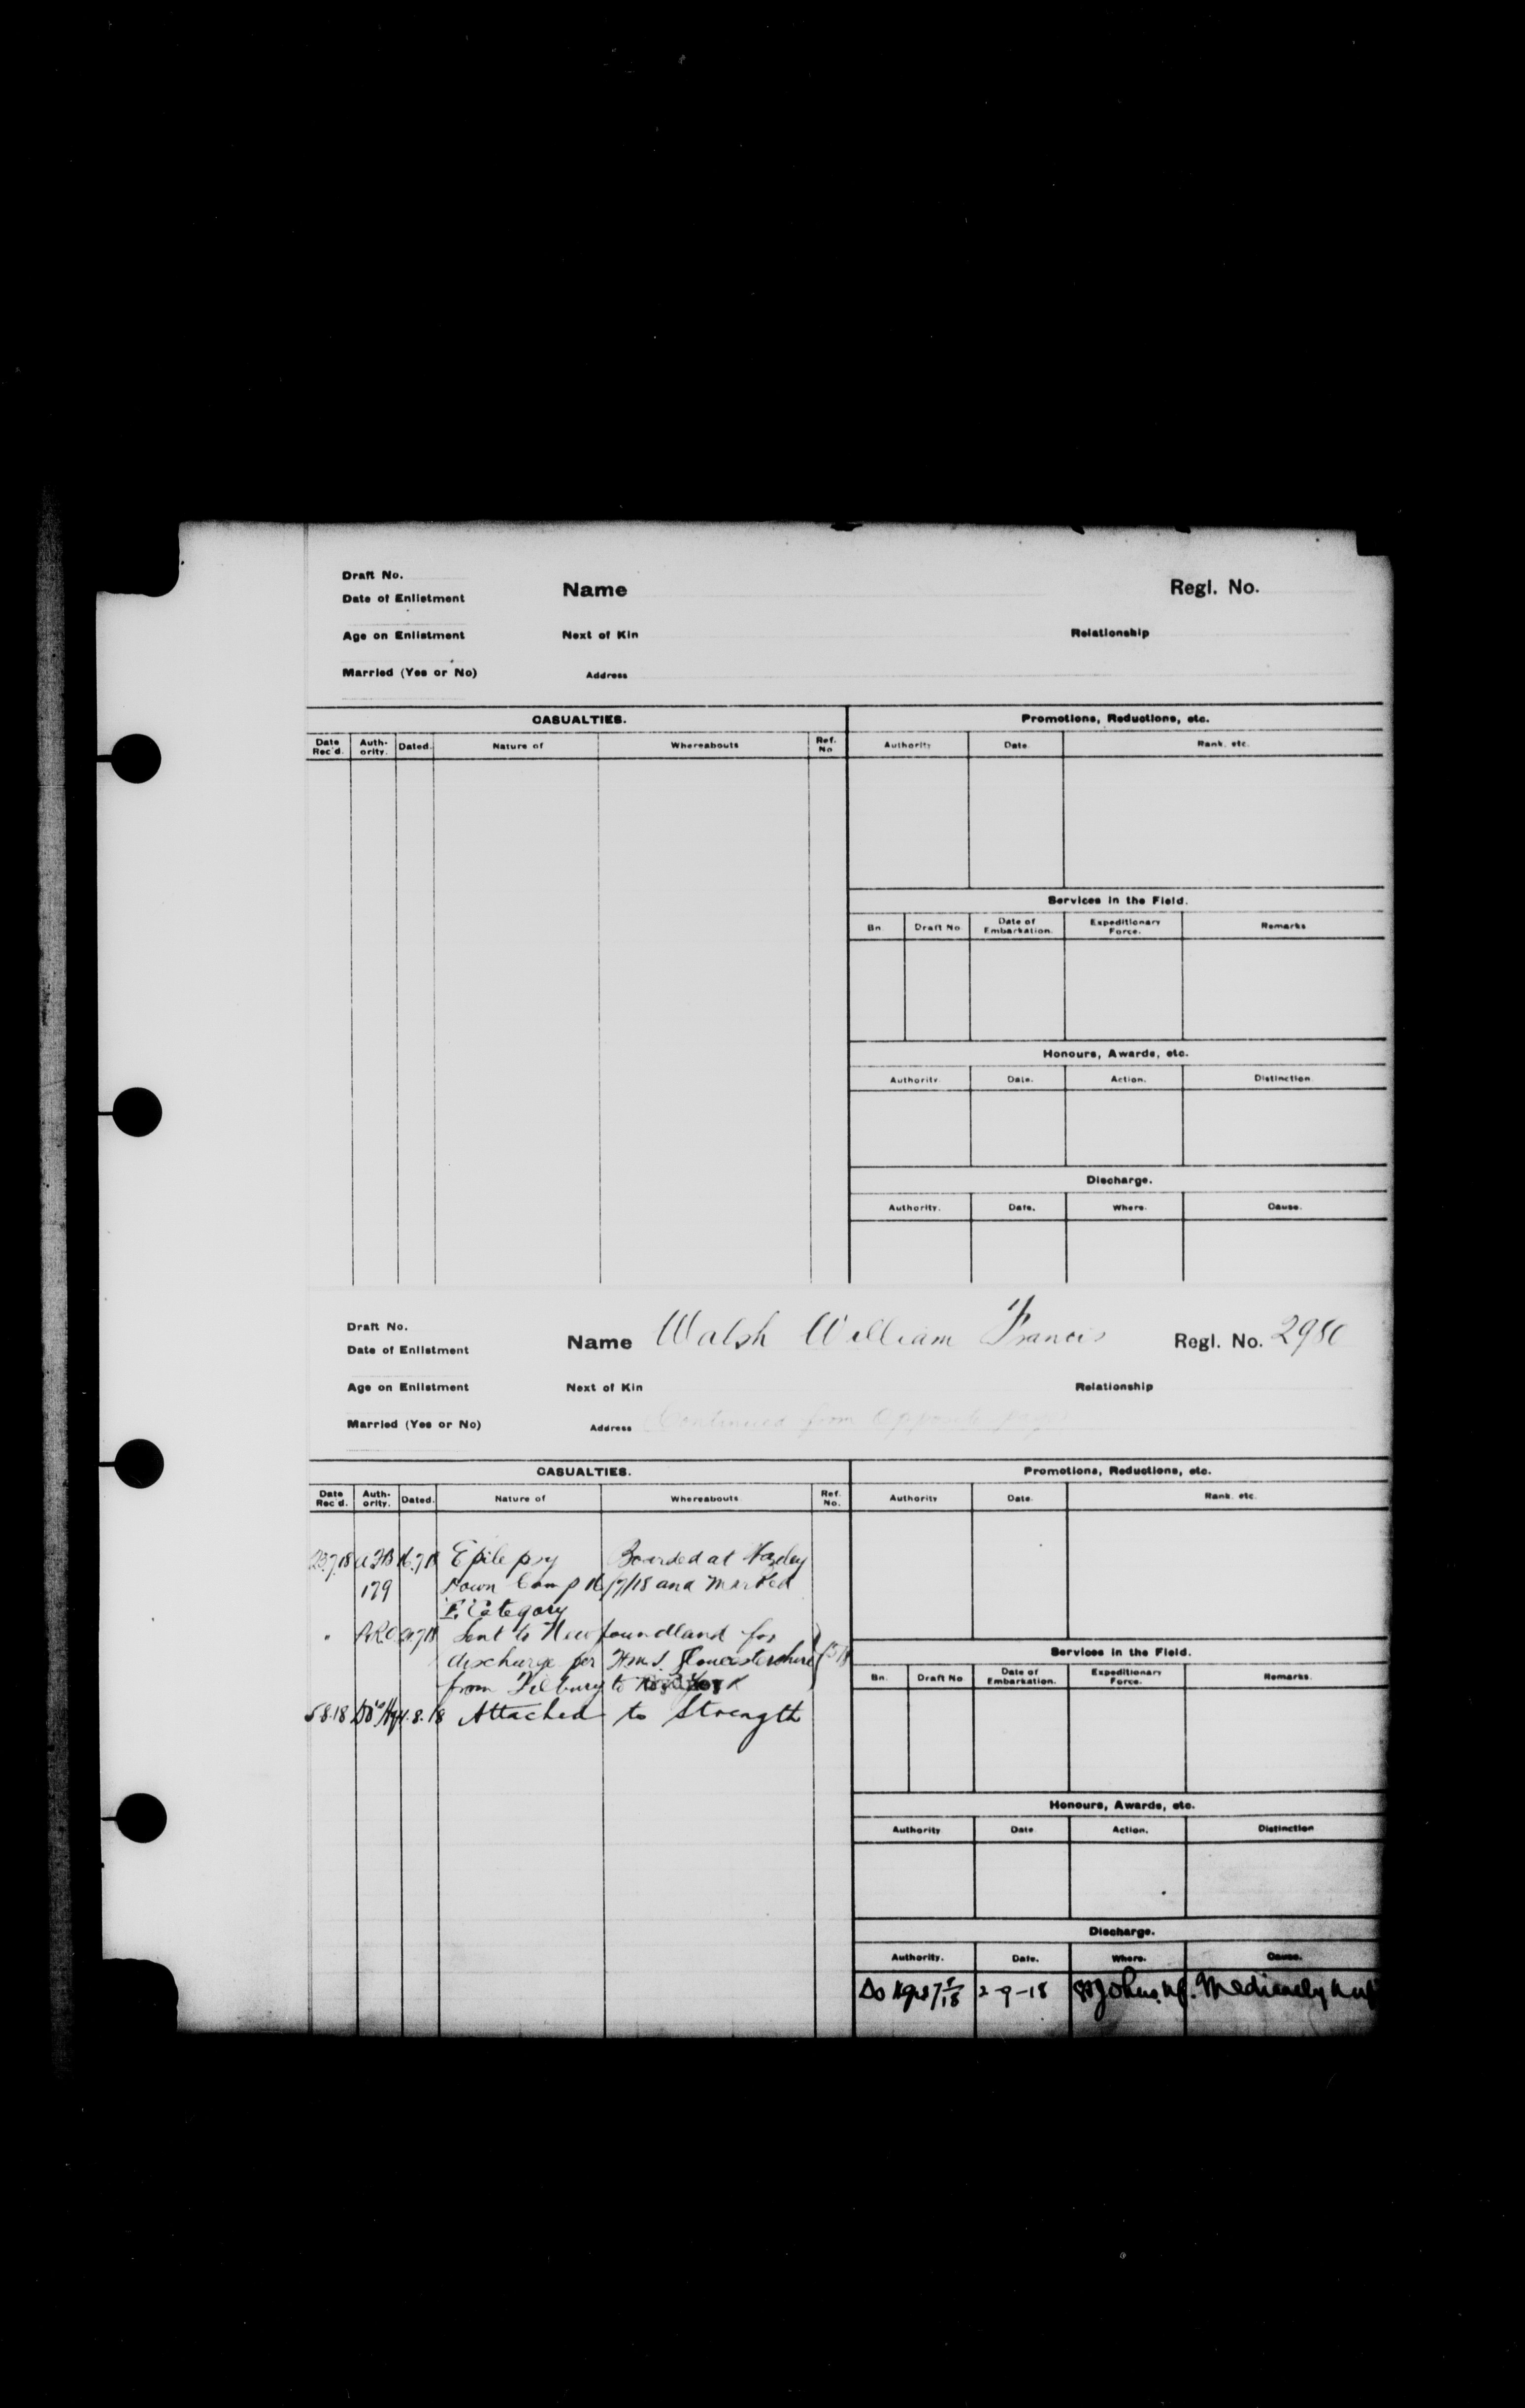 Draft No.
Date of Enlistment
Name
Regl. No.
Age on Enlistment
Next of Kin
Relationship
Married (Yes or No)
Address
CASUALTIES.
Promotions, Reductions, etc.
Date Rec'd. Auth-ority. Dated. Nature of Whereabouts Ref. No
Authority Date Rank. etc.
Services in the Field.
Bn. Draft No Date of Embarkation. Expeditionary Force. Remarks
Honours, Awards, etc.
Authority. Date. Action. Distinction
Discharge.
Authority. Date. Where. Cause.
Draft No.
Date of Enlistment
Name Walsh William Francis
Regl. No. 2980
Age on Enlistment
Next of Kin
Relationship
Married (Yes or No)
Address Continued from Opposite page
CASUALTIES.
Promotions, Reductions, etc.
Date Rec'd. Auth-ority. Dated. Nature of Whereabouts Ref. No.
Authority Date Rank. etc.
23.7.18 A.F.B 16.7.18 Epilepsy Boarded at Hazley
179 Down Camp 16/7/18 and marked
E. Category
" Sent to Newfoundland for
discharge per H.M.S. Gloucestershire
from Tilbury to
5.8.18 4.8.18 Attached to Strength
Services in the Field.
Bn. Draft No Date of Embarkation. Expeditionary Force. Remarks.
Honours, Awards, etc.
Authority Date Action. Distinction
Discharge.
Authority. Date. Where. Cause.
2-9-18 St Johns. Nf. Medically